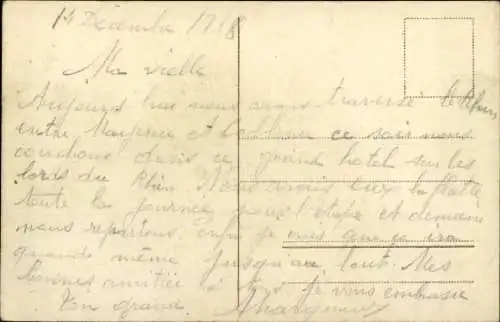 14 Décembre 1918
Ma vielle
Aujourd hui nous avons traversé le Rhin
entre Mayence et Coblence ce soir nous
couchons dans ce grand hotel sur les
bords du Rhin Nous avons eux la flotte
toute la journée pour l'étape et demain
nous repartons, enfin je crois que ce ira
quand même jusqu'au bout. Mes
bonnes amitiés à tous je vous embrasse
Ton grand